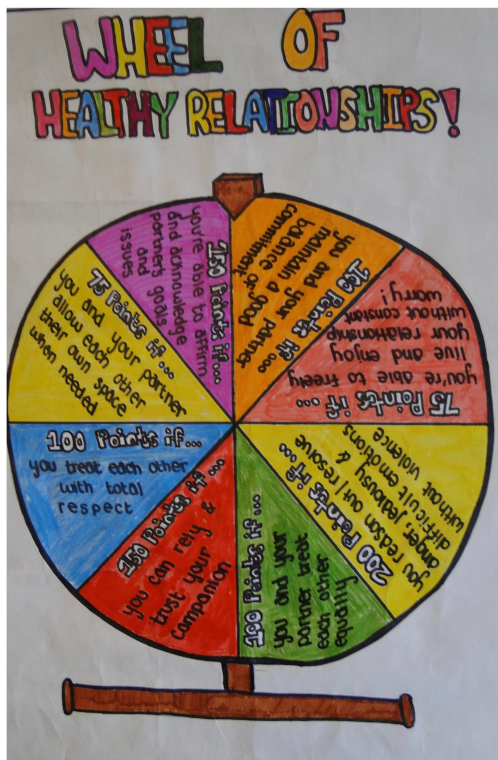 WHEEL OF
HEALTHY RELATIONSHIPS!
150 Points if...
you're able to affirm
and acknowledge
partner's goals
and
issues
100 Points if...
you and your partner
maintain a good
balance of
commitment
75 Points if...
you're able to freely
live and enjoy
your relationship
without constant
worry!
200 Points if...
you reason out/resolve
anger, jealousy &
difficult emotions
without violence
100 Points if...
you and your
partner treat
each other
equality
150 Points if...
you can rely &
trust your
companion
100 Points if...
you treat each other
with total
respect
75 Points if...
you and your partner
allow each other
their own space
when needed